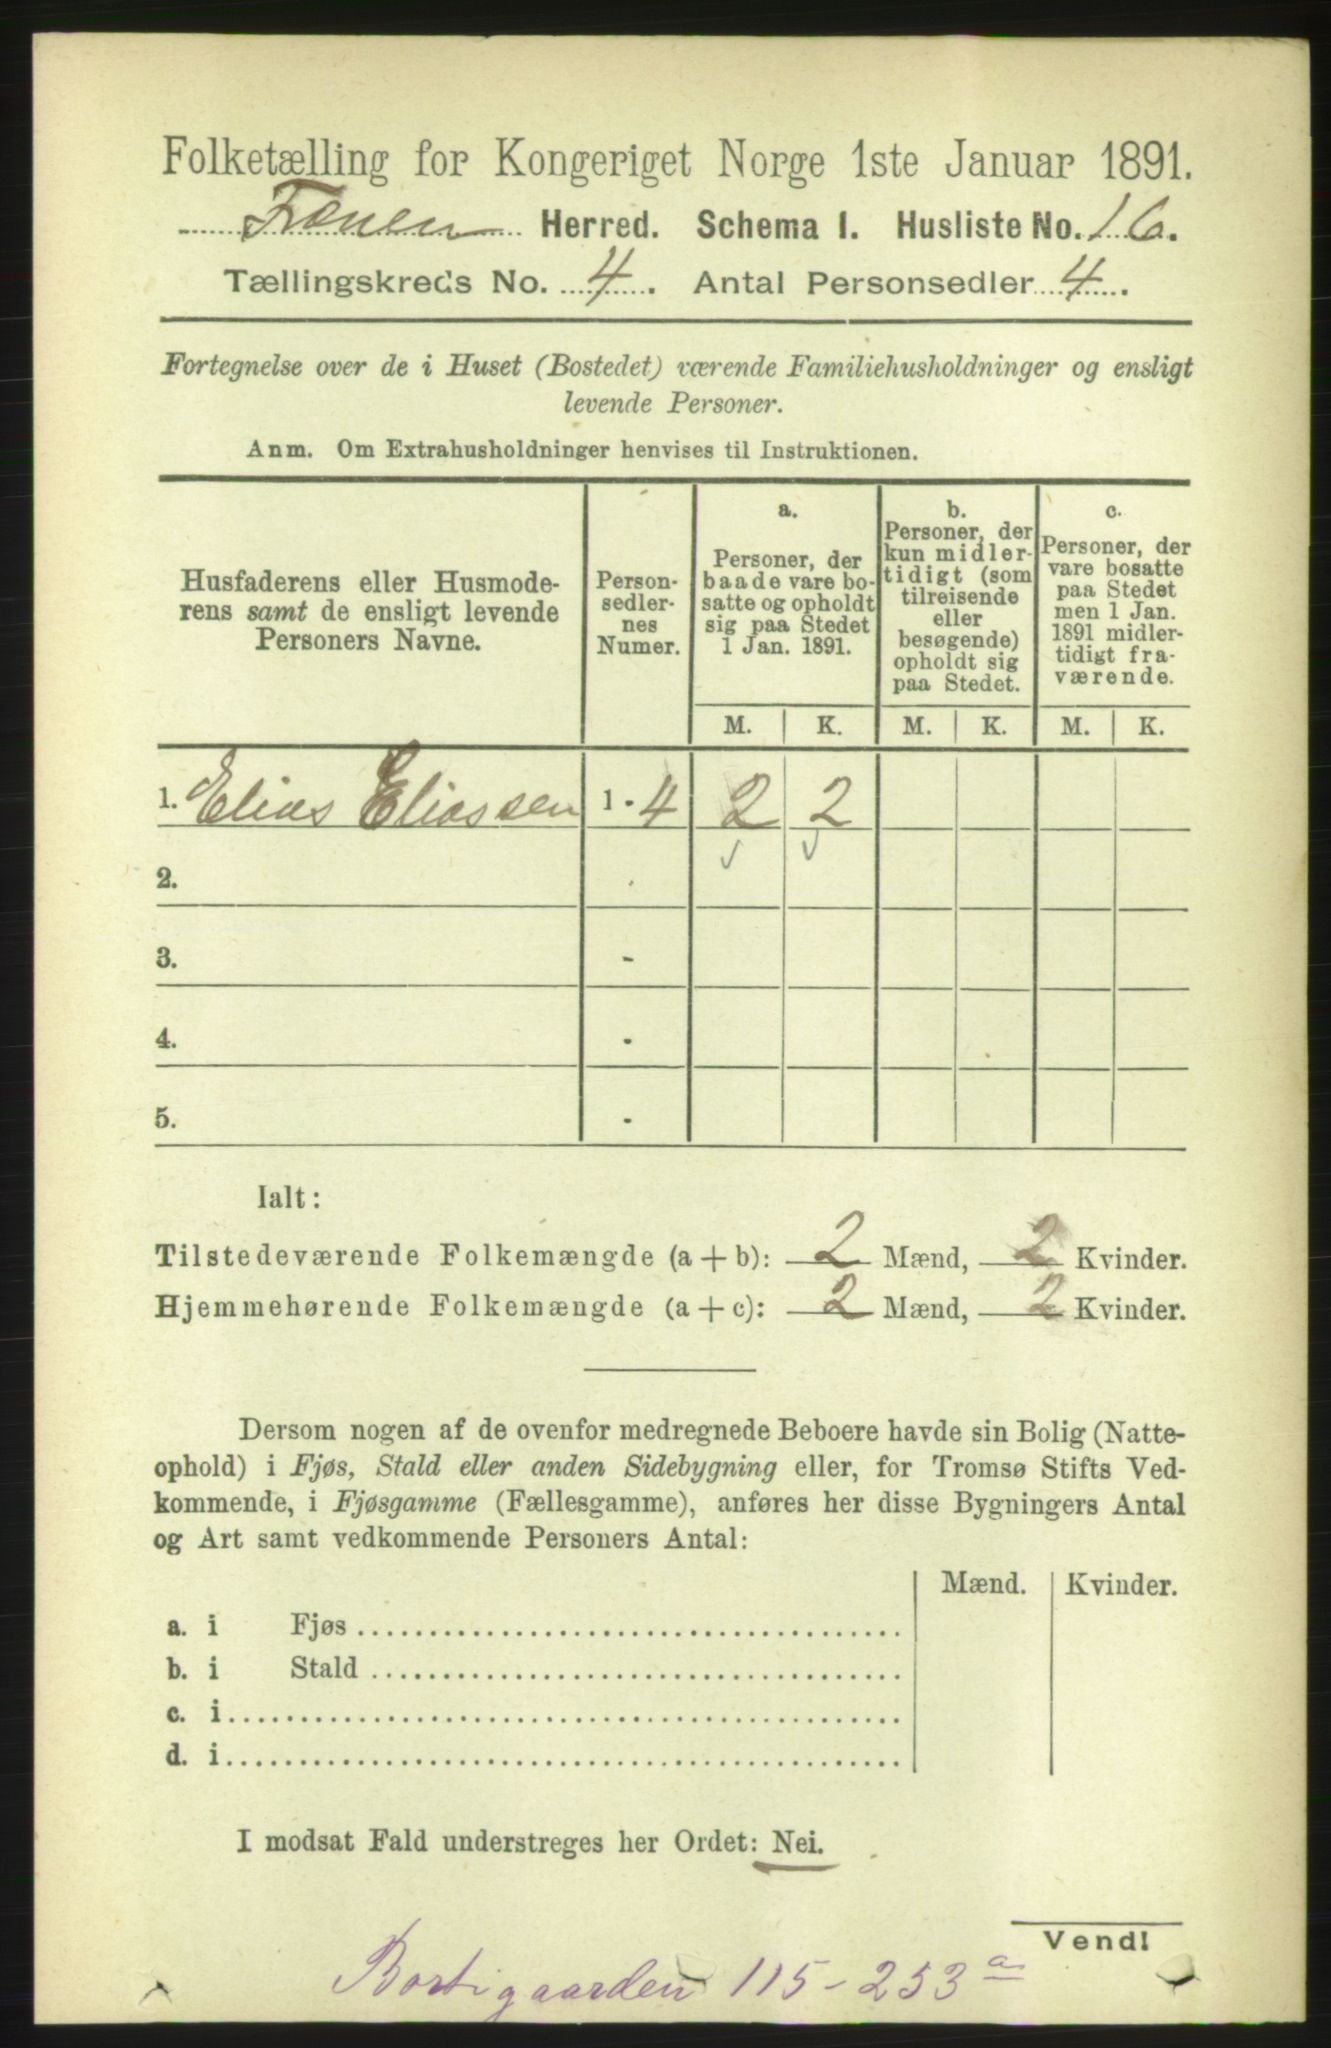 Folketælling for Kongeriget Norge 1ste Januar 1891.
Fænen Herred. Schema I. Husliste No. 16.
Tællingskreds No. 4. Antal Personsedler 4.
Fortegnelse over de i Huset (Bostedet) værende Familiehusholdninger og ensligt
levende Personer.
Anm. Om Extrahusholdninger henvises til Instruktionen.
Husfaderens eller Husmode-
rens samt de ensligt levende
Personers Navne.
Person-
sedler-
nes
Numer.
a.
Personer, der
baade vare bo-
satte og opholdt
sig paa Stedet
1 Jan. 1891.
b.
Personer, der
kun midler-
tidigt (som
tilreisende
eller
besøgende)
opholdt sig
paa Stedet.
c.
Personer, der
vare bosatte
paa Stedet
men 1 Jan.
1891 midler-
tidigt fra-
værende.
M. K. M. K. M. K.
1. Elias Eliassen 1 - 4 2 2
2.
3. -
4. -
5. -
Ialt:
Tilstedeværende Folkemængde (a + b): 2 Mænd, 2 Kvinder.
Hjemmehørende Folkemængde (a + c): 2 Mænd, 2 Kvinder.
Dersom nogen af de ovenfor medregnede Beboere havde sin Bolig (Natte-
ophold) i Fjøs, Stald eller anden Sidebygning eller, for Tromsø Stifts Ved-
kommende, i Fjøsgamme (Fællesgamme), anføres her disse Bygningers Antal
og Art samt vedkommende Personers Antal:
Mænd. Kvinder.
a. i Fjøs
b. i Stald
c. i
d. i
I modsat Fald understreges her Ordet: Nei.
Vend!
Bortigaarden 115-253 a